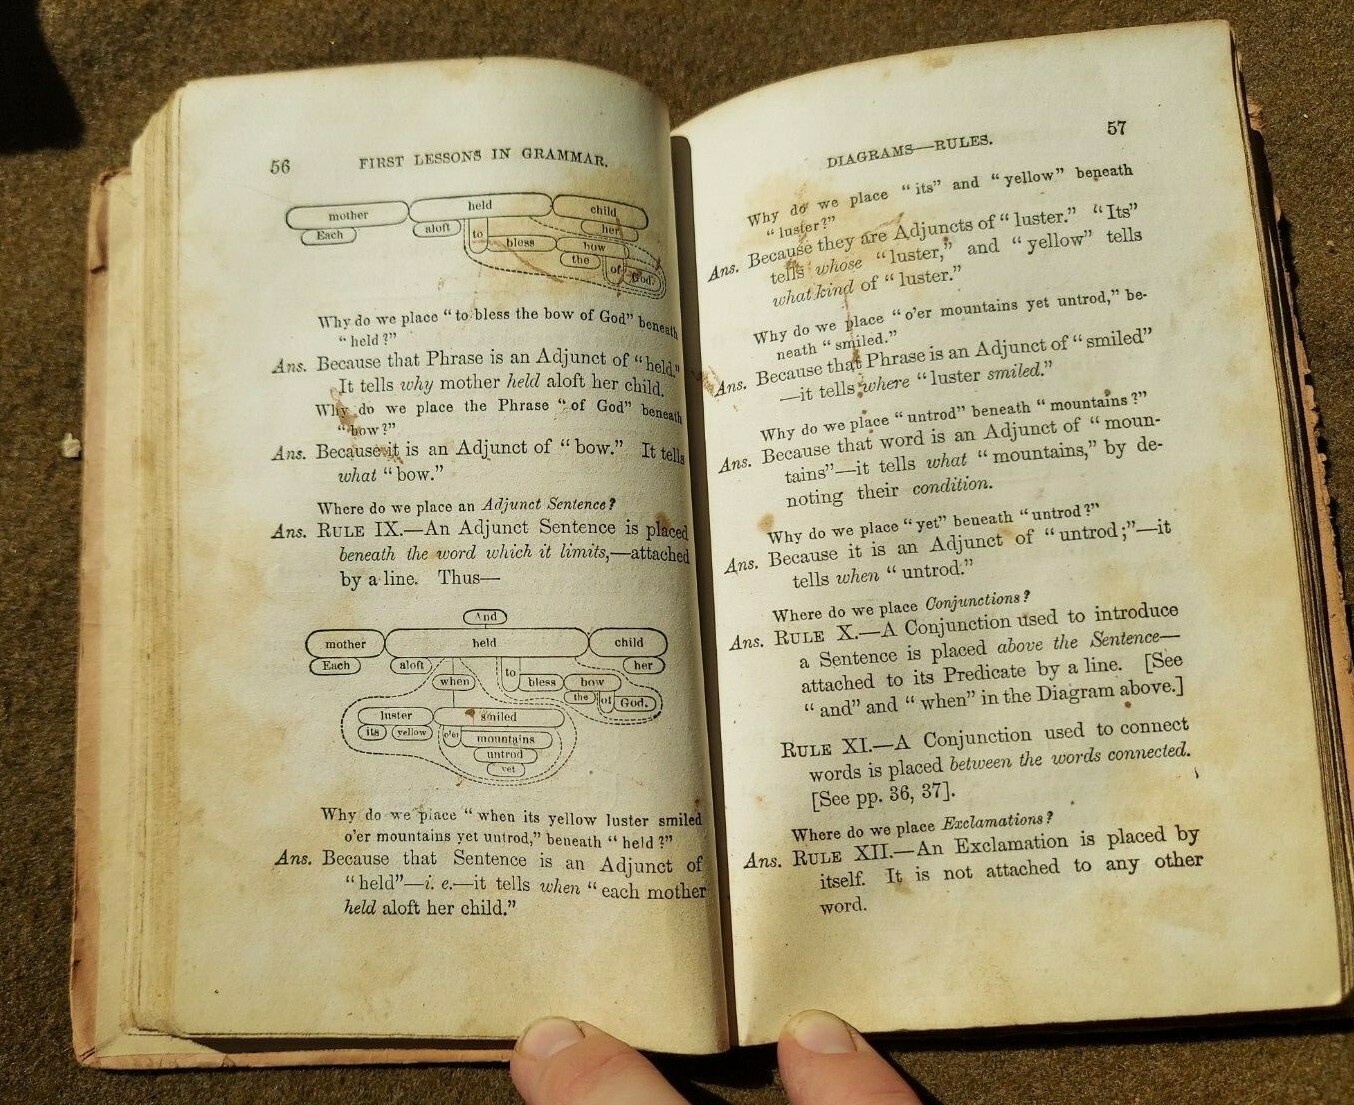 56
FIRST LESSONS IN GRAMMAR.
mother held child
Each aloft to her
bless bow
the of God.
Why do we place “to bless the bow of God” beneath
“held?”
Ans. Because that Phrase is an Adjunct of “held.”
It tells why mother held aloft her child.
Why do we place the Phrase “of God” beneath
“bow?”
Ans. Because it is an Adjunct of “bow.” It tells
what “bow.”
Where do we place an Adjunct Sentence?
Ans. RULE IX.—An Adjunct Sentence is placed
beneath the word which it limits,—attached
by a line. Thus—
And
mother held child
Each aloft to her
when bless bow
the of God.
luster smiled
its yellow o'er mountains
untrod
yet
Why do we place “when its yellow luster smiled
o'er mountains yet untrod,” beneath “held?”
Ans. Because that Sentence is an Adjunct of
“held”—i. e.—it tells when “each mother
held aloft her child.”
DIAGRAMS—RULES.
57
Why do we place “its” and “yellow” beneath
“luster?”
Ans. Because they are Adjuncts of “luster.” “Its”
tells whose “luster,” and “yellow” tells
what kind of “luster.”
Why do we place “o'er mountains yet untrod,” be-
neath “smiled.”
Ans. Because that Phrase is an Adjunct of “smiled”
—it tells where “luster smiled.”
Why do we place “untrod” beneath “mountains?”
Ans. Because that word is an Adjunct of “moun-
tains”—it tells what “mountains,” by de-
noting their condition.
Why do we place “yet” beneath “untrod?”
Ans. Because it is an Adjunct of “untrod;”—it
tells when “untrod.”
Where do we place Conjunctions?
Ans. RULE X.—A Conjunction used to introduce
a Sentence is placed above the Sentence—
attached to its Predicate by a line. [See
“and” and “when” in the Diagram above.]
RULE XI.—A Conjunction used to connect
words is placed between the words connected.
[See pp. 36, 37].
Where do we place Exclamations?
Ans. RULE XII.—An Exclamation is placed by
itself. It is not attached to any other
word.